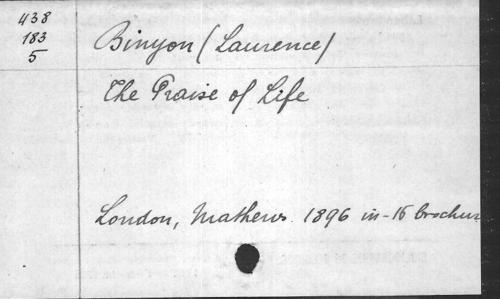 438
183
5
Binyon (Laurence)
The Praise of Life
London, Mathews 1896 in-16 brochure